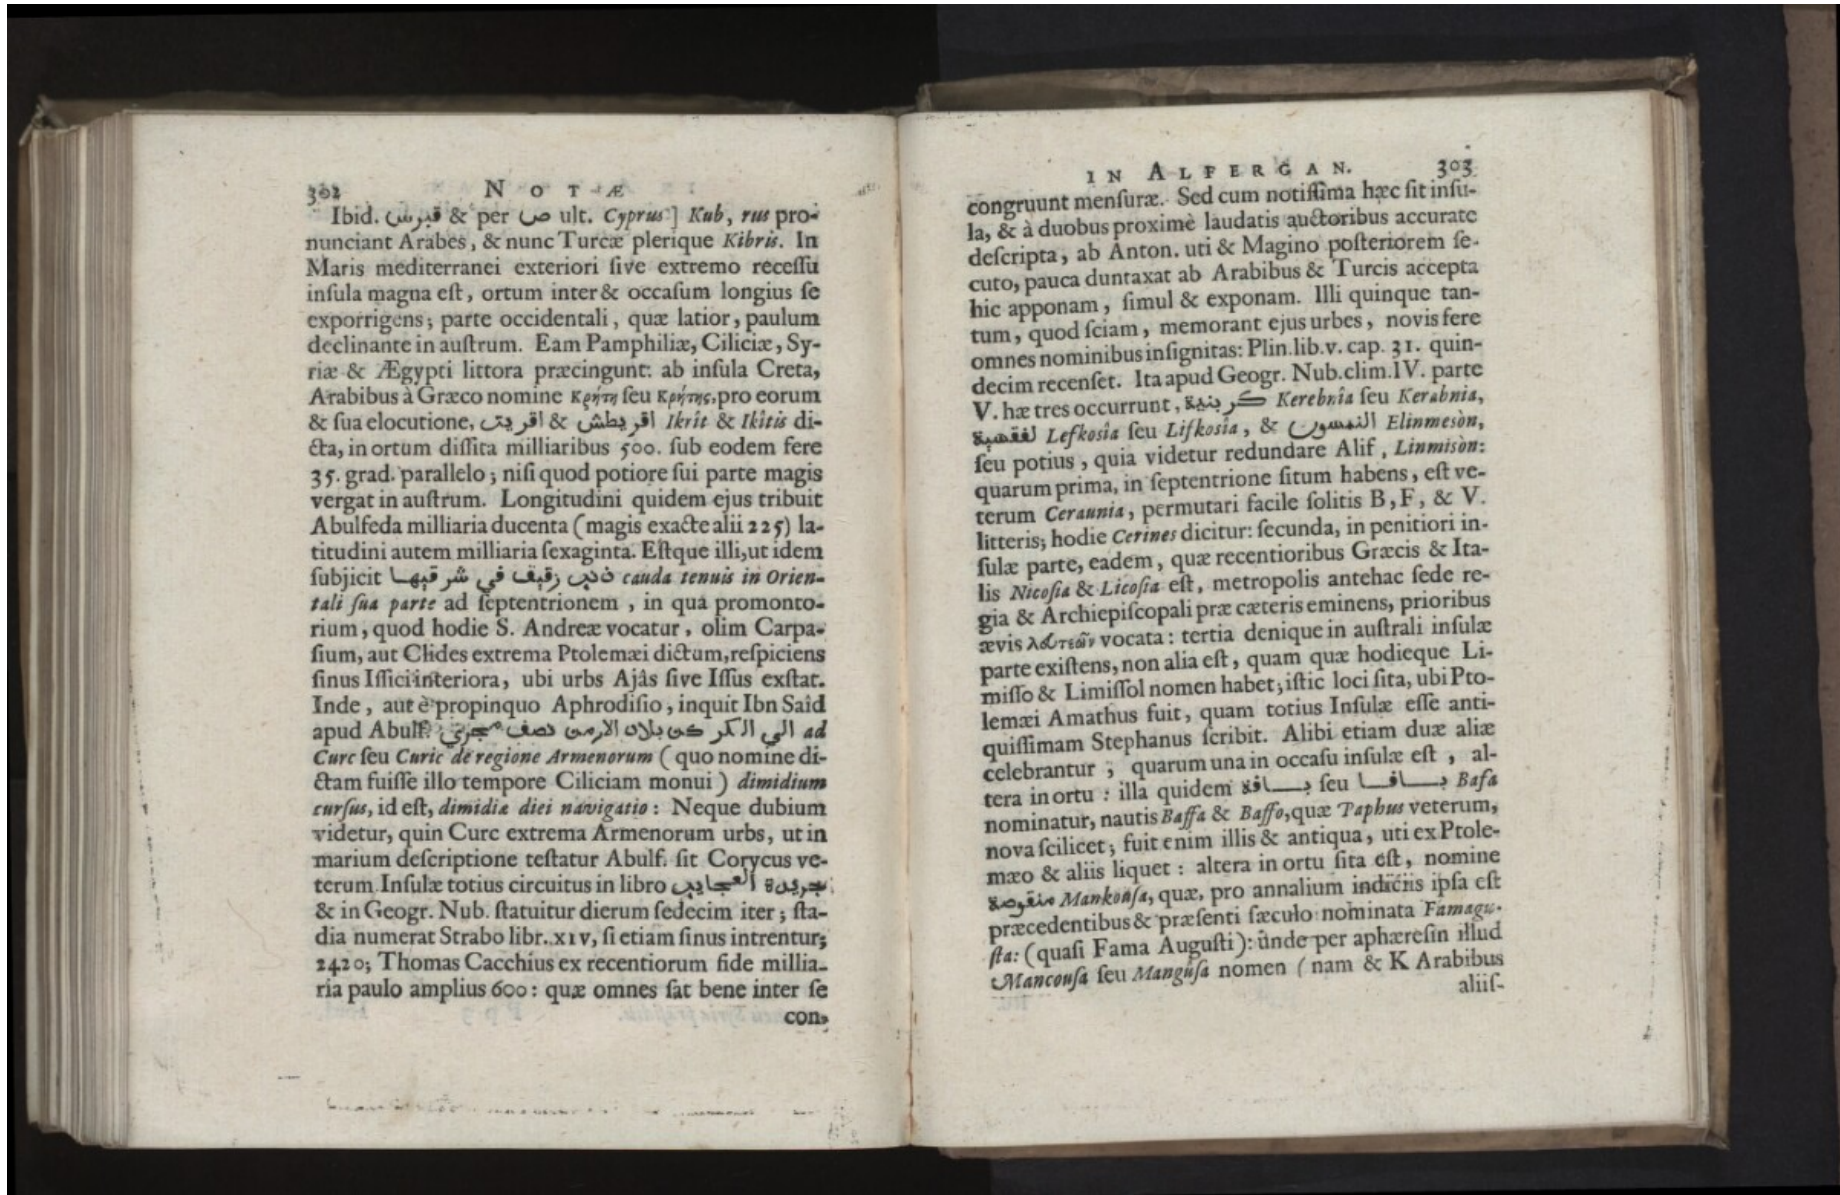 302 NOTÆ
Ibid. قبرس & per ص ult. Cyprus] Kub, rus pro-
nunciant Arabes, & nunc Turcæ plerique Kibris. In
Maris mediterranei exteriori ſive extremo receſſu
inſula magna eſt, ortum inter & occaſum longius ſe
exporrigens; parte occidentali, quæ latior, paulum
declinante in auſtrum. Eam Pamphiliæ, Ciliciæ, Sy-
riæ & Ægypti littora præcingunt: ab inſula Creta,
Arabibus à Græco nomine Κρήτη ſeu Κρήτης, pro eorum
& ſua elocutione, اقريطش & اقريت Ikrît & Ikîtis di-
cta, in ortum diſſita milliaribus 500. ſub eodem fere
35. grad. parallelo; niſi quod potiore ſui parte magis
vergat in auſtrum. Longitudini quidem ejus tribuit
Abulfeda milliaria ducenta (magis exacte alii 225) la-
titudini autem milliaria ſexaginta. Eſtque illi, ut idem
ſubjicit ذنب رقيق في شرقيها cauda tenuis in Orien-
tali ſua parte ad ſeptentrionem, in qua promonto-
rium, quod hodie S. Andreæ vocatur, olim Carpa-
ſium, aut Clides extrema Ptolemæi dictum, reſpiciens
ſinus Iſſici interiora, ubi urbs Ajâs ſive Iſſus exſtat.
Inde, aut è propinquo Aphrodiſio, inquit Ibn Saîd
apud Abulf. الي الكرك من بلاد الارمن نصف مجري ad
Curc ſeu Curic de regione Armenorum (quo nomine di-
ctam fuiſſe illo tempore Ciliciam monui) dimidium
curſus, id eſt, dimidiæ diei navigatio: Neque dubium
videtur, quin Curc extrema Armenorum urbs, ut in
marium deſcriptione teſtatur Abulf. ſit Corycus ve-
terum. Inſulæ totius circuitus in libro جريدة العجايب
& in Geogr. Nub. ſtatuitur dierum ſedecim iter; ſta-
dia numerat Strabo libr. XIV, ſi etiam ſinus intrentur;
2420; Thomas Cacchius ex recentiorum fide millia-
ria paulo amplius 600: quæ omnes ſat bene inter ſe
con-
IN ALFERGAN. 303
congruunt menſuræ. Sed cum notiſſima hæc ſit inſu-
la, & à duobus proximè laudatis auctoribus accurate
deſcripta, ab Anton. uti & Magino poſteriorem ſe-
cuto, pauca duntaxat ab Arabibus & Turcis accepta
hic apponam, ſimul & exponam. Illi quinque tan-
tum, quod ſciam, memorant ejus urbes, novis fere
omnes nominibus inſignitas: Plin. lib. v. cap. 31. quin-
decim recenſet. Ita apud Geogr. Nub. clim. IV. parte
V. hæ tres occurrunt, كربنية Kerebnîa ſeu Kerabnia,
لفقسية Lefkosîa ſeu Lifkosîa, & النمسون Elinmesòn,
ſeu potius, quia videtur redundare Alif, Linmisòn:
quarum prima, in ſeptentrione ſitum habens, eſt ve-
terum Ceraunia, permutari facile ſolitis B, F, & V.
litteris; hodie Cerines dicitur: ſecunda, in penitiori in-
ſulæ parte, eadem, quæ recentioribus Græcis & Ita-
lis Nicoſia & Licoſia eſt, metropolis antehac ſede re-
gia & Archiepiſcopali præ cæteris eminens, prioribus
ævis λευτεῶν vocata: tertia denique in auſtrali inſulæ
parte exiſtens, non alia eſt, quam quæ hodieque Li-
miſſo & Limiſſol nomen habet; iſtic loci ſita, ubi Pto-
lemæi Amathus fuit, quam totius Inſulæ eſſe anti-
quiſſimam Stephanus ſcribit. Alibi etiam duæ aliæ
celebrantur; quarum una in occaſu inſulæ eſt, al-
tera in ortu: illa quidem بافة ſeu بافا Bafa
nominatur, nautis Baffa & Baffo, quæ Taphus veterum,
nova ſcilicet; fuit enim illis & antiqua, uti ex Ptole-
mæo & aliis liquet: altera in ortu ſita eſt, nomine
منقوصة Mankoûſa, quæ, pro annalium indiciis ipſa eſt
præcedentibus & præſenti ſæculo nominata Famagu-
ſta: (quaſi Fama Auguſti): ûnde per aphæreſin illud
Mancouſa ſeu Mangûſa nomen (nam & K Arabibus
aliiſ-